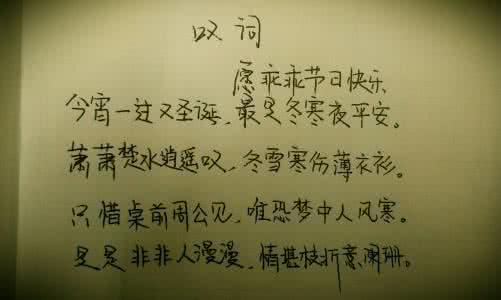 叹词
愿乖乖节日快乐
今宵一过又圣诞,最是冬寒夜平安。
萧萧楚水逍遥叹,冬雪寒伤薄衣衫。
只惜桌前周公见,唯恐梦中人风寒。
是是非非人漫漫,情甚枝折意阑珊。